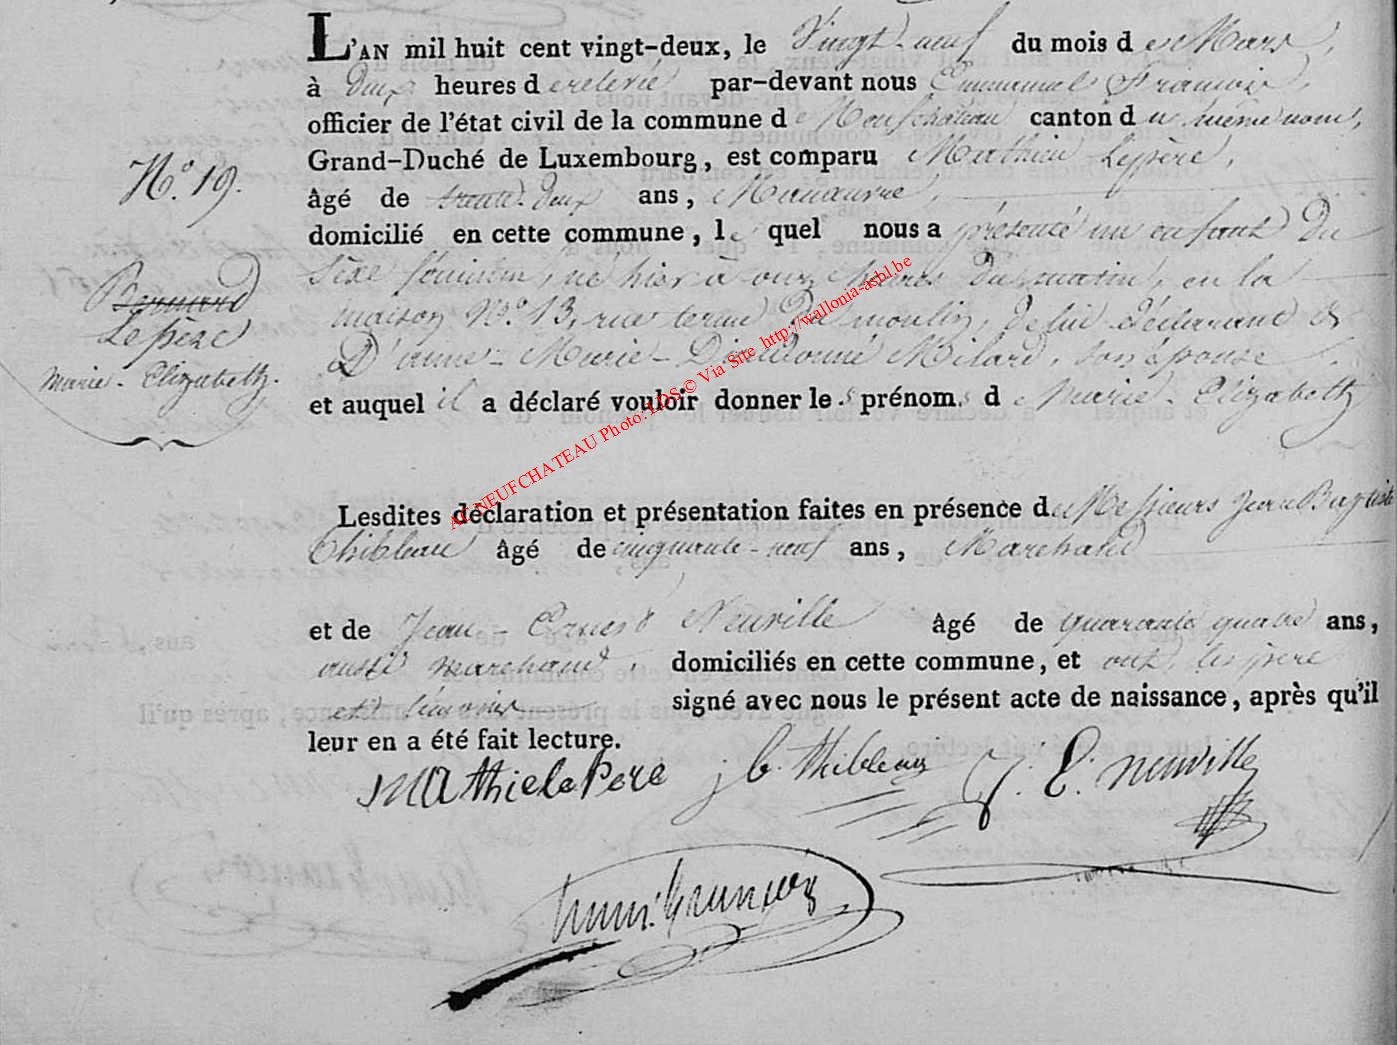 L'AN mil huit cent vingt-deux, le Vingt-neuf du mois de Mars,
à Deux heures de relevée par-devant nous Emmanuel François,
officier de l'état civil de la commune de Neufchâteau canton du même nom,
Grand-Duché de Luxembourg, est comparu Mathieu Lepère,
N.° 19.
âgé de trente-deux ans, Manœuvre,
domicilié en cette commune, le quel nous a présenté un enfant du
sèxe féminin, né hier à onze heures du matin, en la
Bernard
maison N.° 13, rue terme du moulin, de lui déclarant et
Lepère
D'anne-Marie-Dieudonné Milard, son épouse
Marie-Elizabeth.
et auquel il a déclaré vouloir donner les prénoms de Marie-Elizabeth
AE NEUFCHATEAU Photo: LDS © Via Site http://wallonia-asbl.be
Lesdites déclaration et présentation faites en présence de Messieurs Jean Baptiste
Thibleau âgé de cinquante-neuf ans, Marchand
et de Jean-Ernest Neuville âgé de quarante quatre ans,
aussi marchand, domiciliés en cette commune, et ont, les père
et témoins signé avec nous le présent acte de naissance, après qu'il
leur en a été fait lecture.
Mathie lePere j b thibleau J. E. neuville